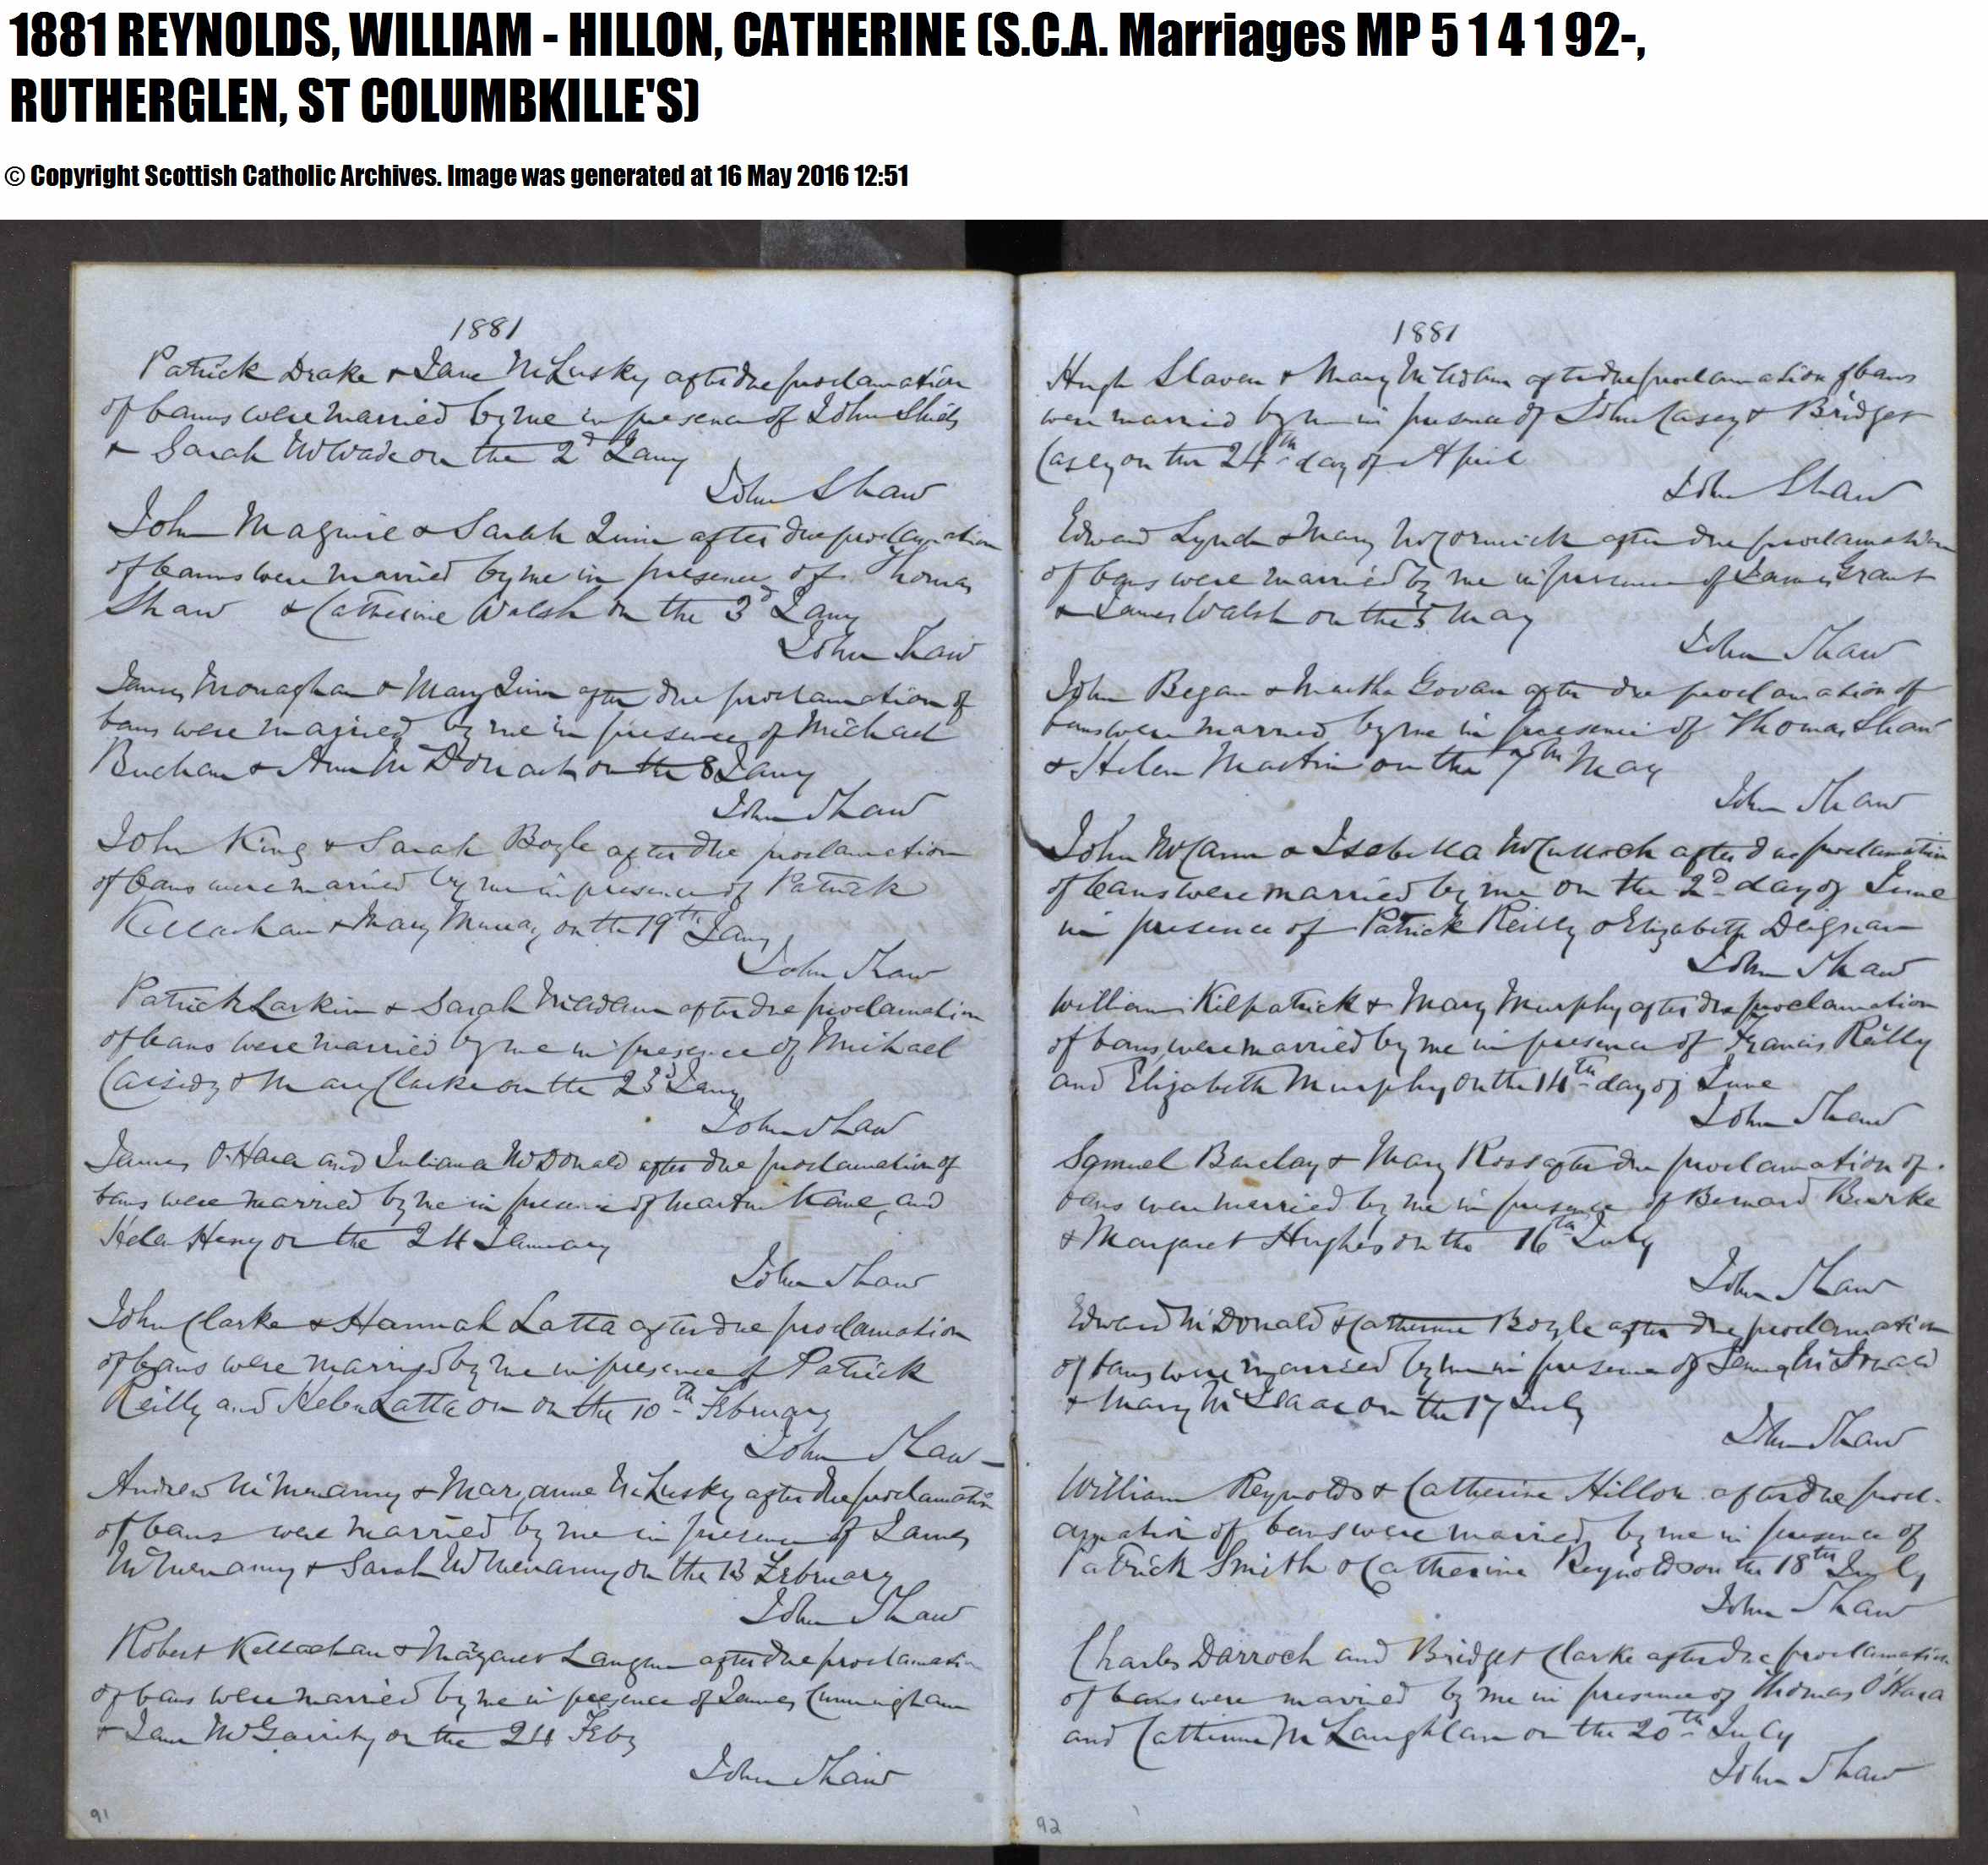 1881 REYNOLDS, WILLIAM - HILLON, CATHERINE (S.C.A. Marriages MP 5 1 4 1 92-,
RUTHERGLEN, ST COLUMBKILLE'S)
© Copyright Scottish Catholic Archives. Image was generated at 16 May 2016 12:51
1881
Patrick Drake & Jane McLusky after due proclamation
of banns were married by me in presence of John Shiels
& Sarah McWade on the 2d Jany
John Shaw
John Maguire & Sarah Quin after due proclamation
of banns were married by me in presence of Thomas
Shaw & Catherine Walsh on the 3d Jany
John Shaw
James Monaghan & Mary Quin after due proclamation of
bans were married by me in presence of Michael
Buchan & Ann on the 8 Jany
John Shaw
John King & Sarah Boyle after due proclamation
of bans were married by me in presence of Patrick
Kellachan & Mary Murray on the 19th Jany
John Shaw
Patrick Larkin & Sarah McAdam after due proclamation
of bans were married by me in presence of Michael
Cassidy & Mary Clarke on the 23d Jany
John Shaw
James O'Hara and Juliana McDonald after due proclamation of
bans were married by me in presence of Martin Kane, and
Helen Henry on the 24 January
John Shaw
John Clarke & Hannah Latta after due proclamation
of bans were married by me in presence of Patrick
Reilly and Helen Latta on on the 10th February
John Shaw
Andrew McMenamy & Maryanne McLusky after due proclamation
of bans were married by me in presence of James
McMenamy & Sarah McMenamy on the 13 February
John Shaw
Robert Kellachan & Margaret Langan after due proclamation
of bans were married by me in presence of James Cunningham
& Jane McGarrity on the 24 Feby
John Shaw
91
1881
Hugh Slaven & Mary McAdam after due proclamation of bans
were married by me in presence of John Casey & Bridget
Casey on the 24th day of April
John Shaw
Edward Lynch & Mary McCormick after due proclamation
of bans were married by me in presence of James Grant
& James Walsh on the 5 May
John Shaw
John Began & Martha Govan after due proclamation of
bans were married by me in presence of Thomas Shaw
& Helen Martin on the 7th May
John Shaw
John McCann & Isabella McCulloch after due proclamation
of bans were married by me on the 2d day of June
in presence of Patrick Reilly & Elizabeth Deignan
John Shaw
William Kilpatrick & Mary Murphy after due proclamation
of bans were married by me in presence of Francis Reilly
and Elizabeth Murphy on the 14th day of June
John Shaw
Samuel Barclay & Mary Ross after due proclamation of
bans were married by me in presence of Bernard Burke
& Margaret Hughes on the 16th July
John Shaw
Edward McDonald & Catherine Boyle after due proclamation
of bans were married by me in presence of James McDonald
& Mary McIsaac on the 17 July
John Shaw
William Reynolds & Catherine Hillon after due procl-
amation of bans were married by me in presence of
Patrick Smith & Catherine Reynolds on the 18th July
John Shaw
Charles Darroch and Bridget Clarke after due proclamation
of bans were married by me in presence of Thomas O'Hara
and Catherine McLaughlan on the 20th July
John Shaw
92